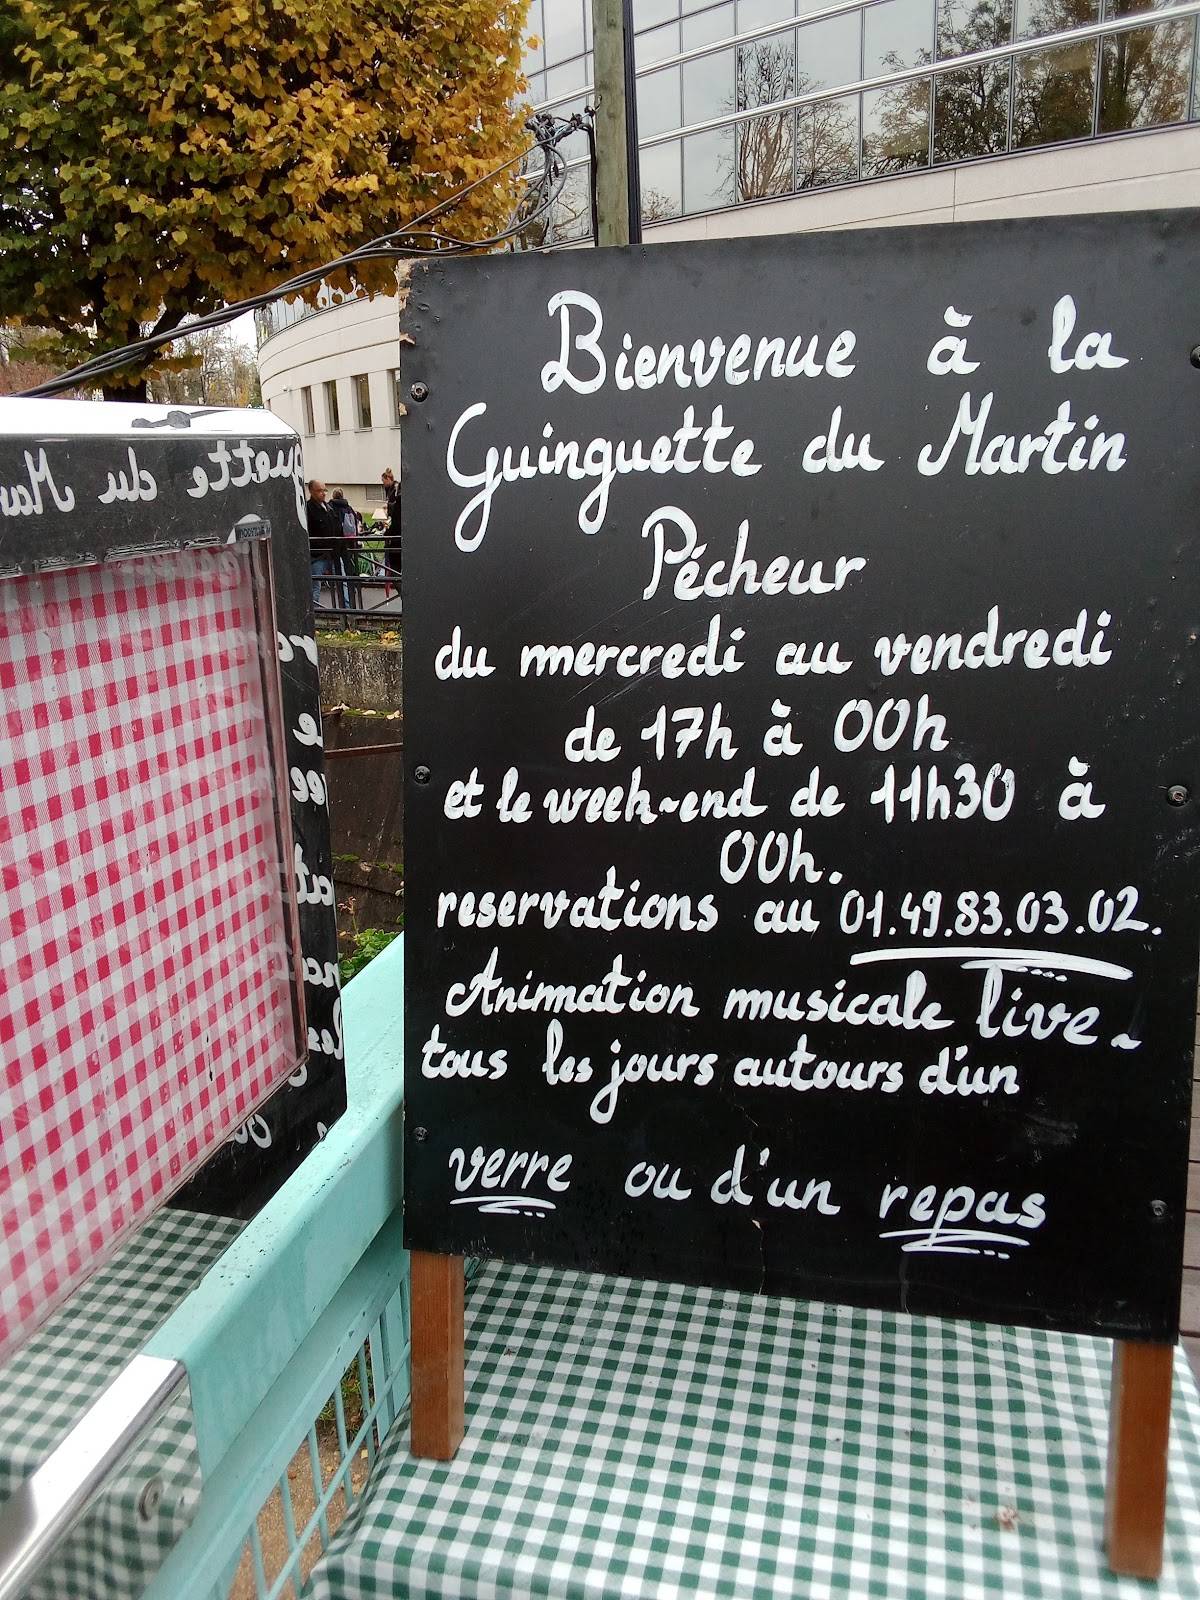 Bienvenue à la
Guinguette du Martin
Pêcheur
du mercredi au vendredi
de 17h à 00h
et le week-end de 11h30 à
00h.
reservations au 01.49.83.03.02.
Animation musicale live
tous les jours autours d'un
verre ou d'un repas
guette du Mar